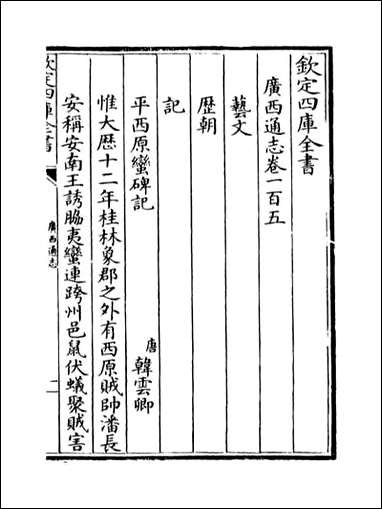 欽定四庫全書
廣西通志卷一百五
藝文
歴朝
記
平西原蠻碑記
唐
韓雲卿
惟大歴十二年桂林象郡之外有西原賊帥潘長
安稱安南王誘脇夷蠻連跨州邑鼠伏蟻聚賊害
欽定四庫全書
廣西通志